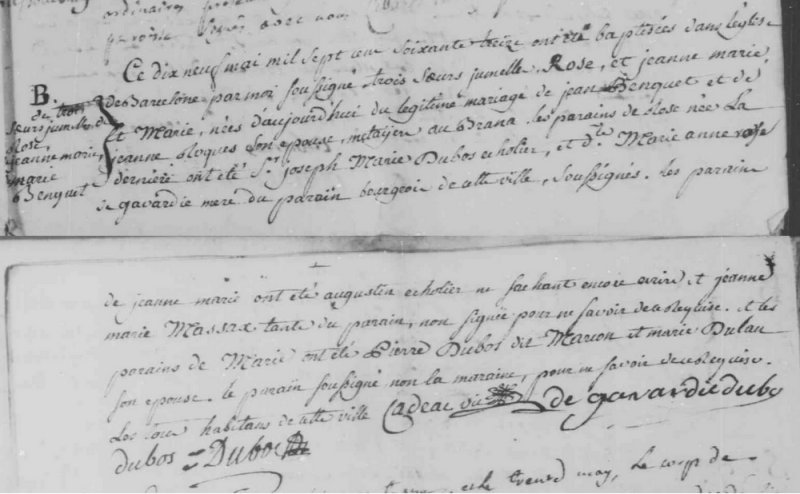 ordinaires
avec nous
Ce dix neuf mai mil sept cent soixante treize ont été baptisées dans leglise
B.
de trois
sœurs jumelles de
Rose,
jeanne marie,
marie
Benquet
de Barcelone par moi soussigné, trois sœurs jumelle, Rose, et jeanne marie,
et Marie, nées d'aujourd'hui du legitime mariage de jean Benquet et de
jeanne bloques son epouse, metayers au Brana. les parains de Rose née La
derniere ont été Sr. joseph Marie Dubos echolier, et dlle Marie anne rose
de gavardie mere du parain bourgeois de cette ville, soussignés. les parains
de jeanne marie ont été augustin echolier ne sachant encore ecrire et jeanne
marie Massax tante du parain, non signée pour ne savoir de ce requise. et les
parains de Marie ont été Pierre Dubos dit Marion et marie Dulau
son epouse. le parain soussigné non la maraine, pour ne savoir de ce requise.
Les tous habitans de cette ville Cadeac vic de gavardie dubos
dubos Dubos
may, le corp de